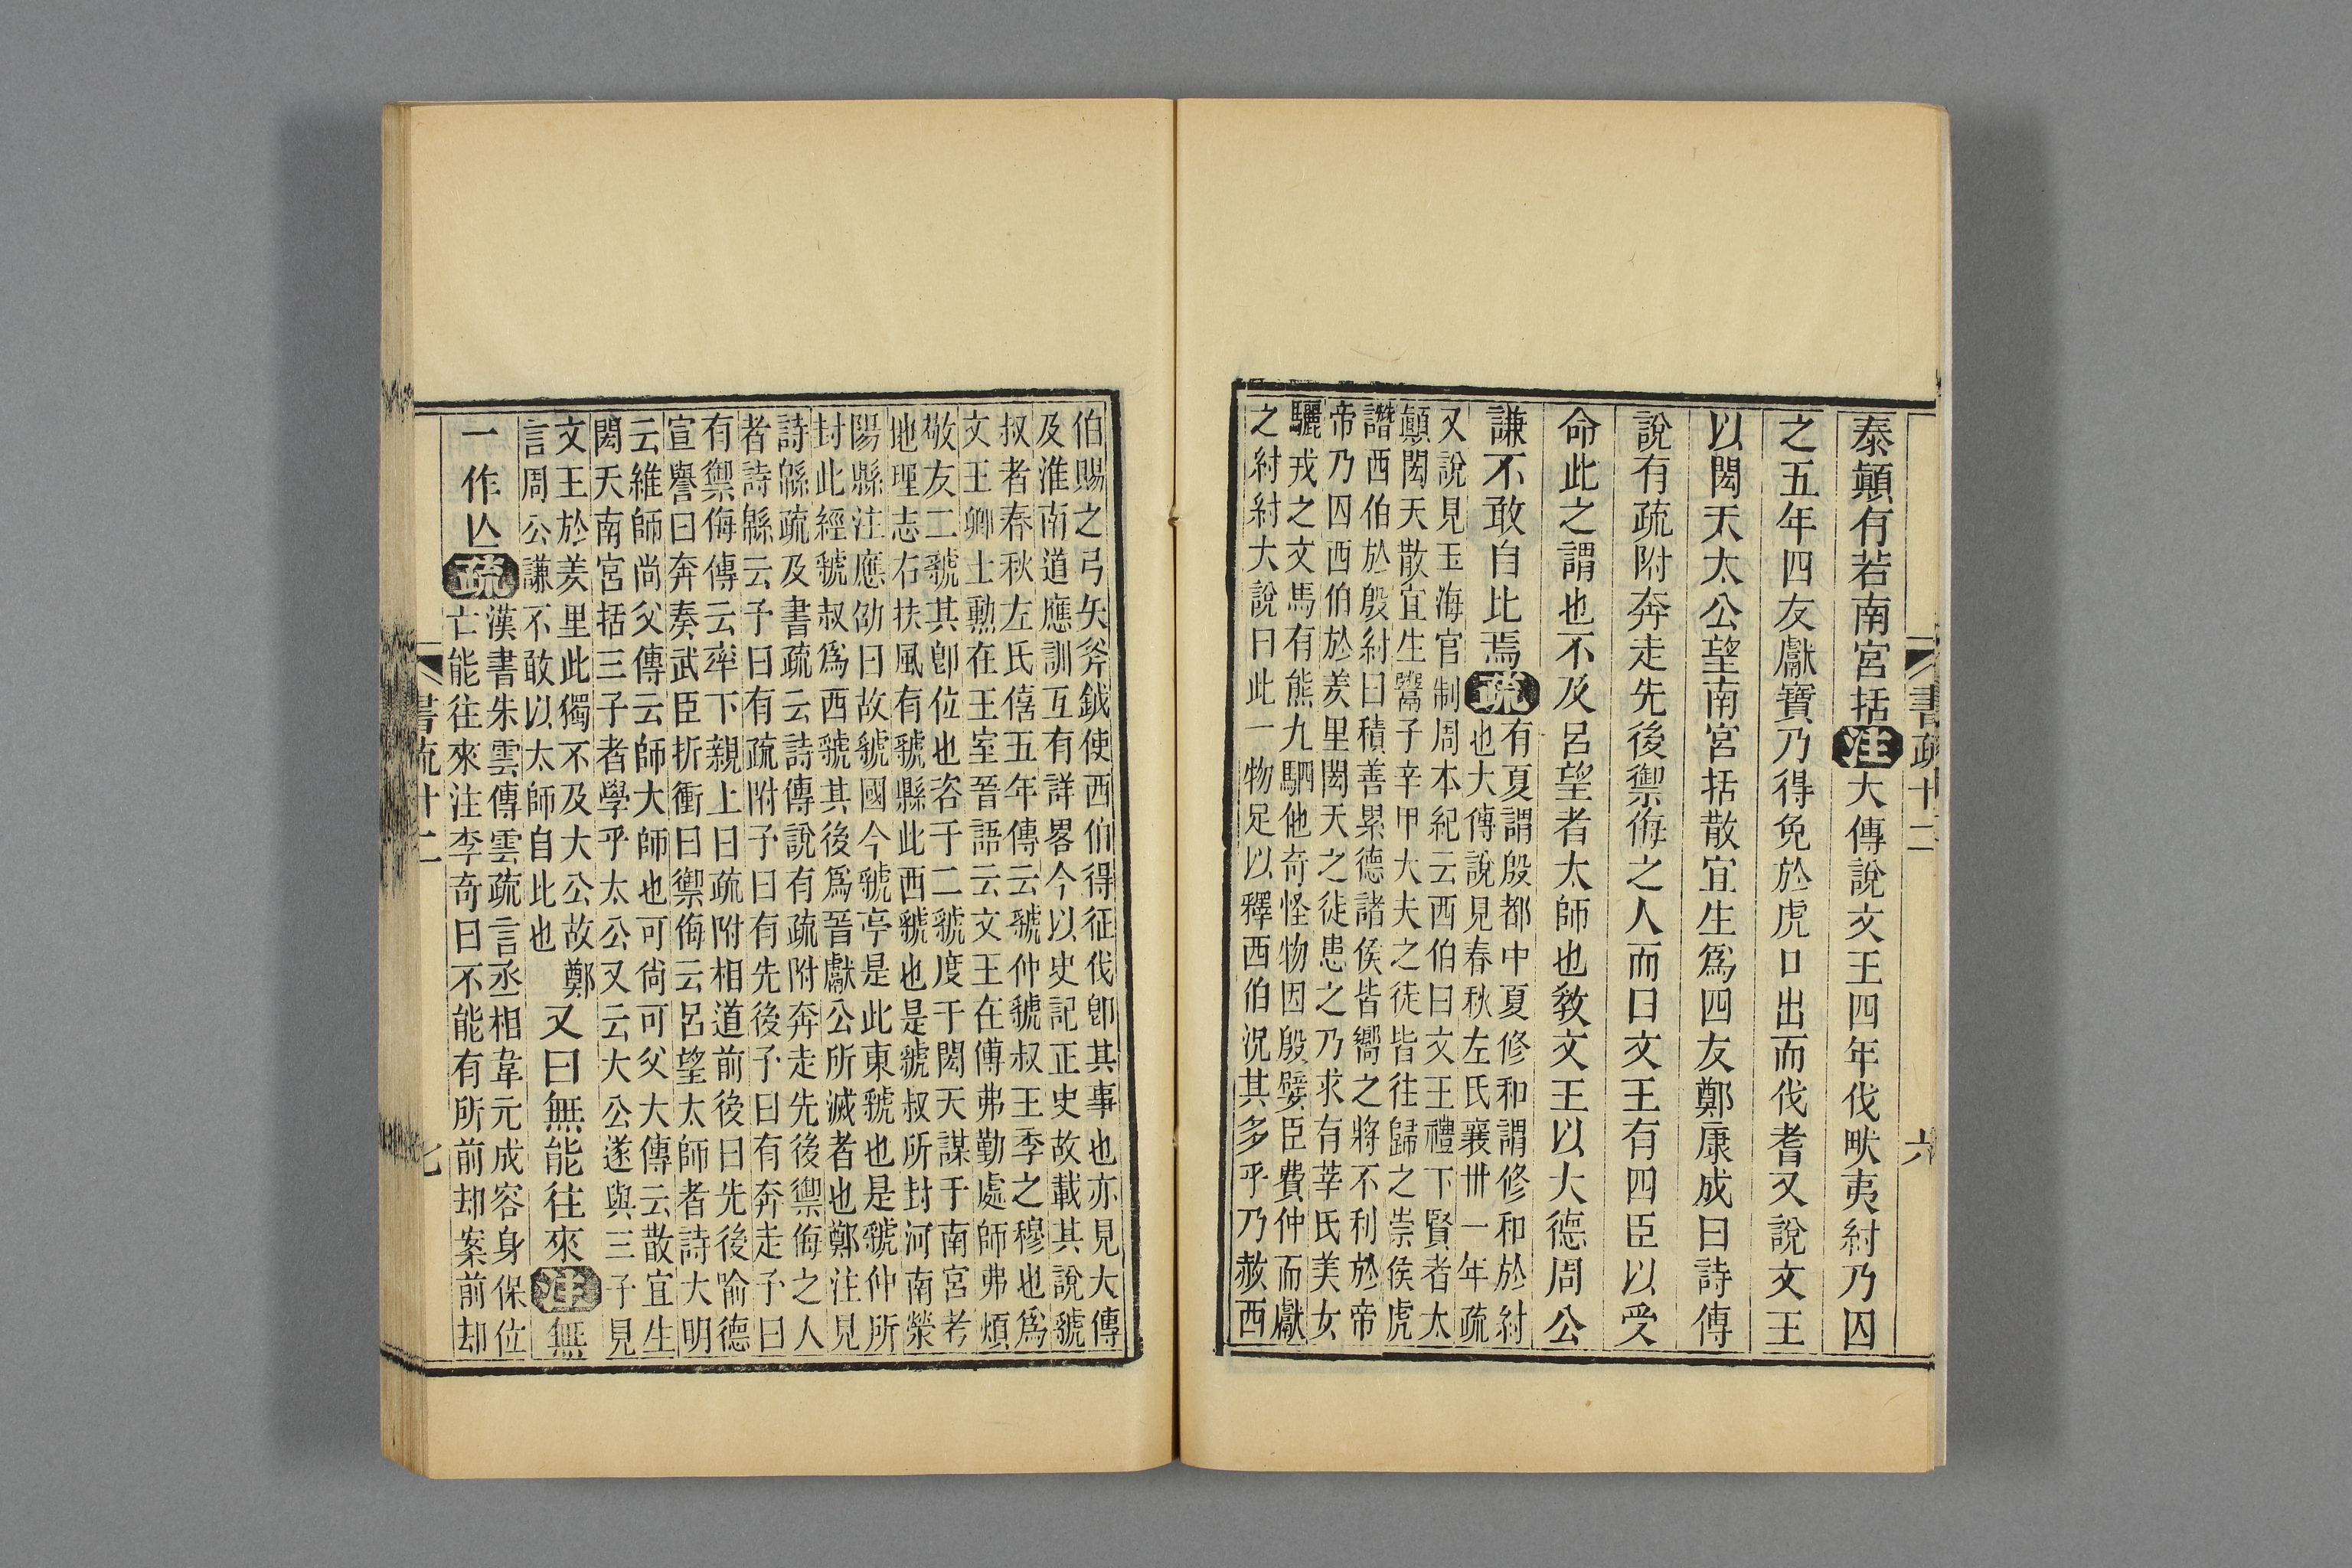 書疏十二
六
泰顚有若南宮括注大傳說文王四年伐畎夷紂乃囚
之五年四友獻寶乃得免於虎口出而伐耆又說文王
以閎夭太公望南宮括散宜生爲四友鄭康成曰詩傳
說有疏附奔走先後禦侮之人而曰文王有四臣以受
命此之謂也不及呂望者太師也敎文王以大德周公
謙不敢自比焉疏
有夏謂殷都中夏修和謂修和於紂
也大傳說見春秋左氏襄卅一年疏
又說見玉海官制周本紀云西伯曰文王禮下賢者太
顚閎夭散宜生鬻子辛甲大夫之徒皆往歸之崇侯虎
譖西伯於殷紂曰積善累德諸侯皆嚮之將不利於帝
帝乃囚西伯於羑里閎夭之徒患之乃求有莘氏美女
驪戎之文馬有熊九駟他奇怪物因殷嬖臣費仲而獻
之紂紂大說曰此一物足以釋西伯況其多乎乃赦西
伯賜之弓矢斧鉞使西伯得征伐卽其事也亦見大傳
及淮南道應訓互有詳畧今以史記正史故載其說虢
叔者春秋左氏僖五年傳云虢仲虢叔王季之穆也爲
文王卿士勳在王室晉語云文王在傅弗勤處師弗煩
敬友二虢其卽位也咨于二虢度于閎夭謀于南宮考
地理志右扶風有虢縣此西虢也是虢叔所封河南滎
陽縣注應劭曰故虢國今虢亭是此東虢也是虢仲所
封此經虢叔爲西虢其後爲晉獻公所滅者也鄭注見
詩緜疏及書疏云詩傳說有疏附奔走先後禦侮之人
者詩緜云予曰有疏附予曰有先後予曰有奔走予曰
有禦侮傳云率下親上曰疏附相道前後曰先後喻德
宣譽曰奔奏武臣折衝曰禦侮云呂望太師者詩大明
云維師尚父傳云師大師也可尙可父大傳云散宜生
閎夭南宮括三子者學乎太公又云大公遂與三子見
文王於羑里此獨不及大公故鄭
言周公謙不敢以太師自此也
又曰無能往來注無
一作亾疏
漢書朱雲傳雲疏言丞相韋元成容身保位
亡能往來注李奇曰不能有所前却案前却
書疏十二
七